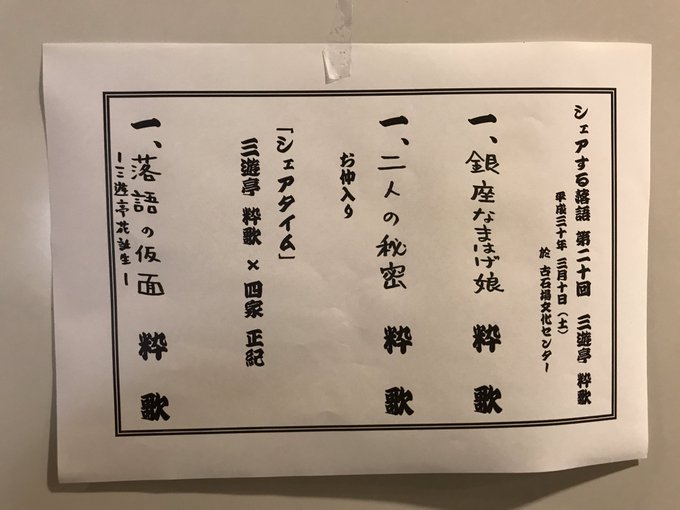 シェアする落語 第二十回 三遊亭 粋歌
平成三十年 三月十日（土）
於 古石場文化センター
一、銀座なまはげ娘 粋歌
一、二人の秘密 粋歌
お仲入り
「シェアタイム」
三遊亭 粋歌 × 四家 正紀
一、落語の仮面 粋歌
ー三遊亭花誕生ー